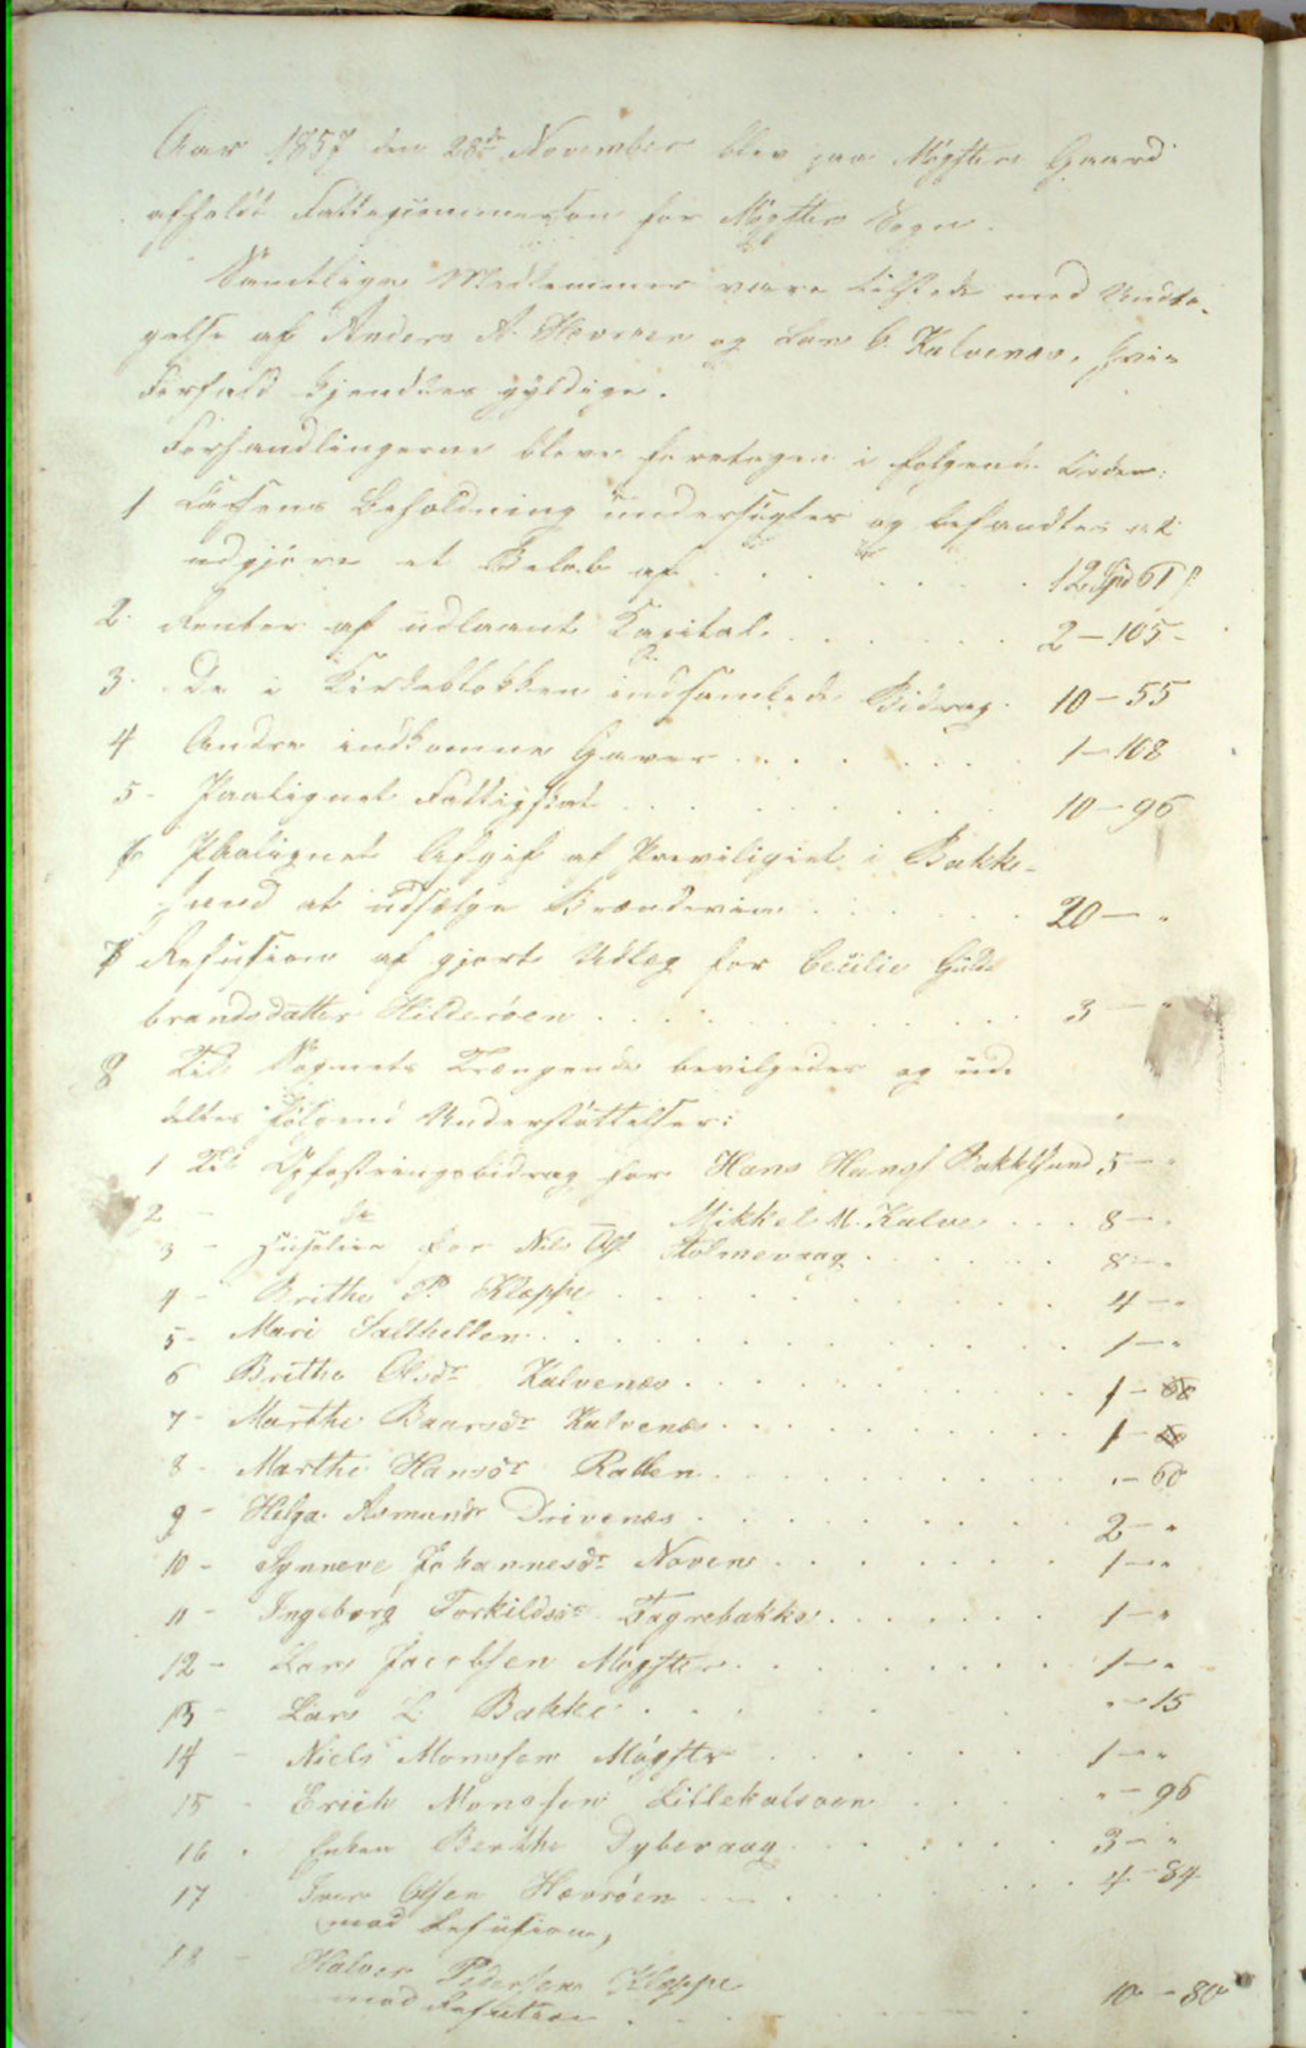 Aar 1857 den 28de November blev paa Møgster Gaard
afholdt Fattigkommission for Møgster Sogn.
Samtlige Medlemmer vare tilstede med Undta-
gelse af Anders A. Hevrøen og Lars C. Kalvenæs, hvis
Forfald kjendtes gyldige.
Forhandlingerne bleve foretagen i følgende Orden:
1 Cassens Beholdning undersøgtes og befandtes at
udgjøre et Beløb af . . . . . . 12 Spd 61 s
2. Renter af udlaant Kapital . . . . . . 2 – 105 –
3. De i Kirkeblokken indsamlede Bidrag . 10 – 55
4 Andre indkomne Gaver . . . . . . 1 – 108
5 – Paalignet Fattigskat . . . . . . 10 – 96
6 Paalignet Afgift af Previligiet i Bakke-
sund at udsælge Brændeviin . . . . . . 20 – "
7 Refusion af gjort Udlæg for Cecilie Guld-
brandsdatter Hilderøen . . . . . . 3 – "
8 Til Sognets Trængende bevilgedes og ud-
deltes følgend Understøttelser:
1 Til Opfostringsbidrag for Hans Hansf Bakkesund 5 – "
2 – do Mikkel M. Kalve . . . 8 – "
3 – Huusleie for Nils Ols. Stolmevaag . . . . . . 8 – "
4 – Brithe P. Kleppe . . . . . . 4 – "
5 – Mari Salthellen . . . . . . 1 – "
6 Brithe Olsdr Kalvenæs . . . . . . 1 – 60
7 – Marthe Baarsdr Kalvenæs . . . . . . 1 – 60
8 – Marthe Hansdr Rabben . . . . . . " – 60
9 – Helga Asmundr Drivenæs . . . . . . 2 – "
10 – Synneve Johannesdr Noven . . . . . . 1 – "
11 – Ingeborg Torkildsdr Fagrebakke . . . . . . 1 – "
12 – Lars Jacobsen Møgster . . . . . . 1 – "
13 – Lars L. Bakke . . . . . . " – 15
14 – Niels Monssen Møgster . . . . . . 1 – "
15 – Erich Monssen Lillekalsøen . . . . " – 96
16 . Enken Berthe Dybevaag . . . . . . 3 – "
17 Iver Olsen Hevrøen . . . . . . 4 – 84
mod Refusion,
18 – Halvor Pedersen Kleppe
mod Refusion . . . . . . 10 – 80